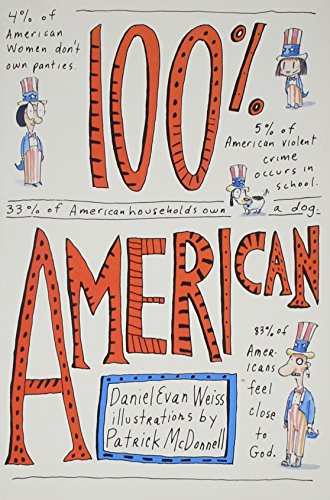 4% of
American
Women don't
own panties.
100%
5% of
American violent
crime
occurs in
school.
33% of American households own a dog.
AMERICAN
83% of
Amer-
icans
feel
close
to
God.
Daniel Evan Weiss
illustrations by
Patrick McDonnell